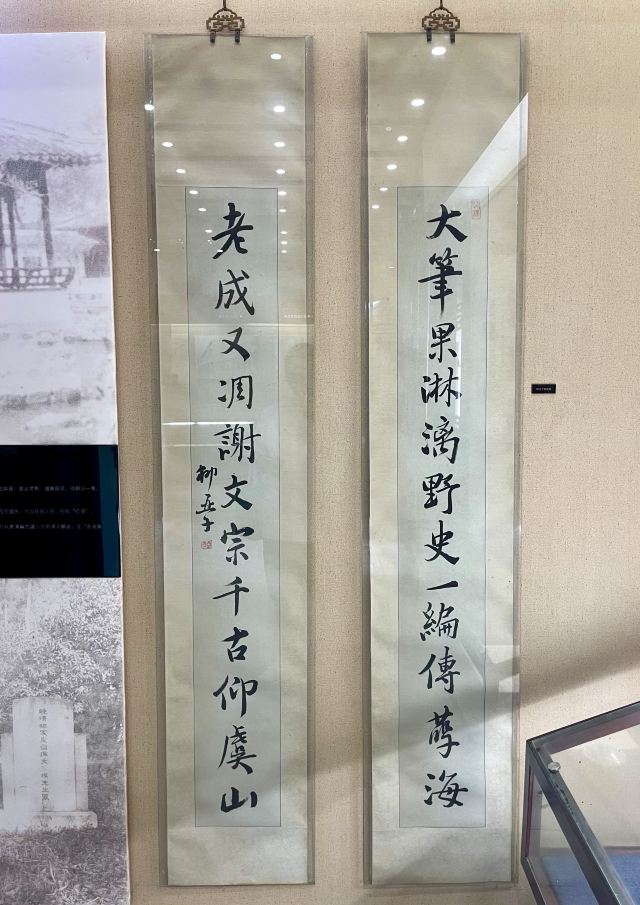 大筆果淋漓野史一編傳孽海
老成又凋謝文宗千古仰虞山
柳亞子